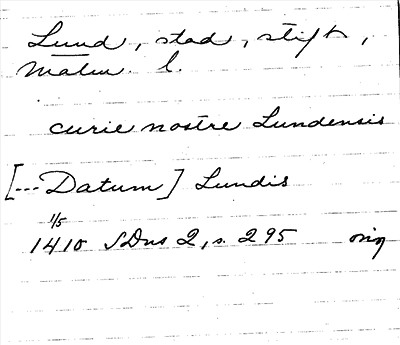 Lund, stad, stift,
Malm. l.
curie nostre Lundensis
[--- Datum] Lundis
1/5
1410 SDns 2, s. 295 orig